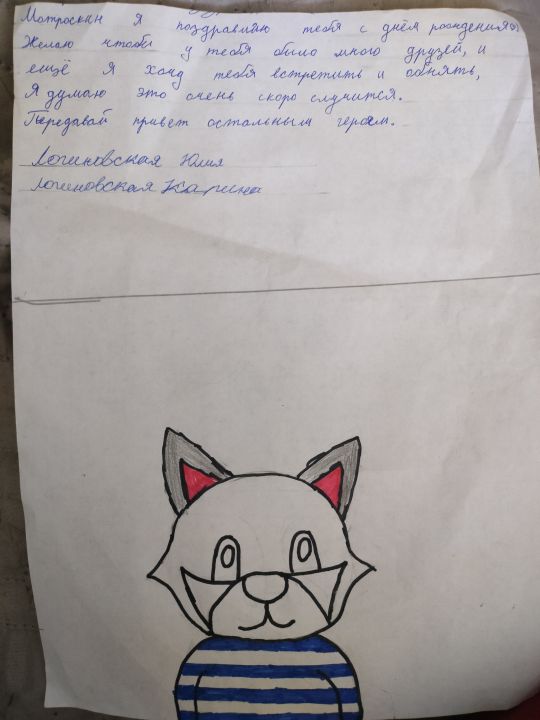 Матроскин я поздравляю тебя с днём рождения!
Желаю чтобы у тебя было много друзей, и
ещё я хочу тебя встретить и обнять,
Я думаю это очень скоро случится.
Передавай привет остальным героям.
Логиновская Юлия
Логиновская Карина